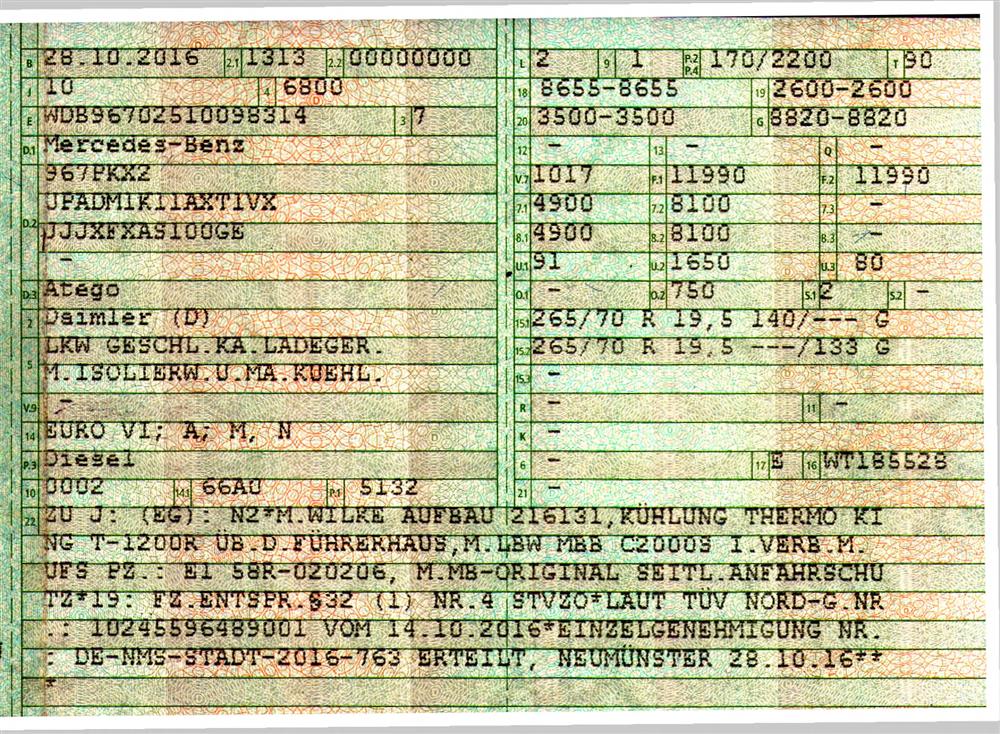 B 28.10.2016 2.1 1313 2.2 00000000 L 2 9 1 P.2 P.4 170/2200 T 90
J 10 4 6800 18 8655-8655 19 2600-2600
E WDB96702510098314 3 7 20 3500-3500 G 8820-8820
D.1 Mercedes-Benz 12 - 13 - Q -
967PKX2 V.7 1017 F.1 11990 F.2 11990
D.2 UPADM1K11AXT1VX 7.1 4900 7.2 8100 7.3 -
JJJXFXAS100GE 8.1 4900 8.2 8100 8.3 -
- U.1 91 U.2 1650 U.3 80
D.3 Atego O.1 - O.2 750 S.1 2 S.2 -
2 Daimler (D) 15.1 265/70 R 19,5 140/--- G
5 LKW GESCHL.KA.LADEGER. 15.2 265/70 R 19,5 ---/133 G
M.ISOLIERW.U.MA.KUEHL. 15.3 -
V.9 - R - 11 -
14 EURO VI; A; M, N K -
P.3 Diesel 6 - 17 E 16 WT185528
10 0002 14.1 66A0 P.1 5132 21 -
22 ZU J: (EG): N2*M.WILKE AUFBAU 216131,KÜHLUNG THERMO KI
NG T-1200R ÜB.D.FÜHRERHAUS,M.LBW MBB C2000S I.VERB.M.
UFS PZ.: E1 58R-020206, M.MB-ORIGINAL SEITL.ANFAHRSCHU
TZ*19: FZ.ENTSPR.§32 (1) NR.4 STVZO*LAUT TÜV NORD-G.NR
.: 10245596489001 VOM 14.10.2016*EINZELGENEHMIGUNG NR.
: DE-NMS-STADT-2016-763 ERTEILT, NEUMÜNSTER 28.10.16**
*